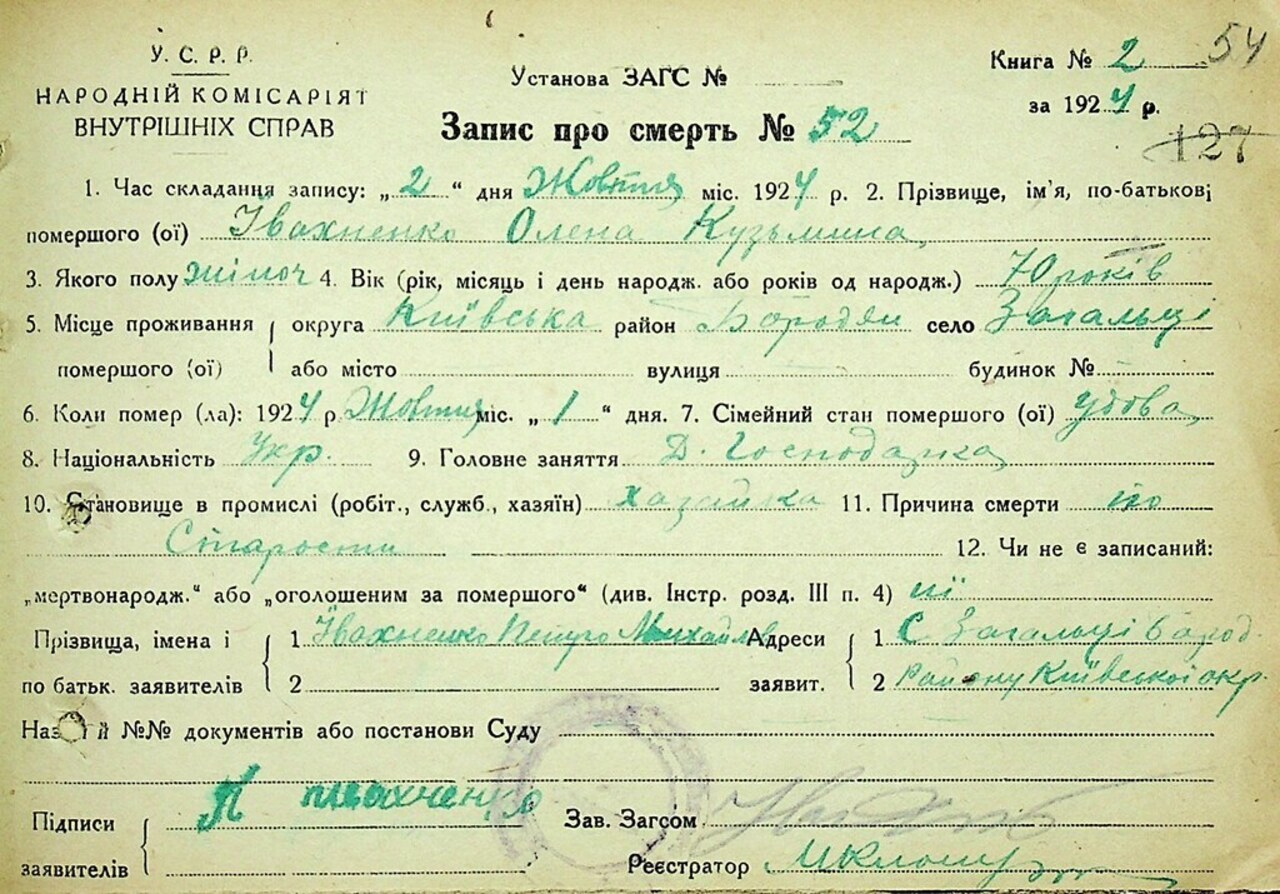 У. С. Р. Р.
НАРОДНІЙ КОМІСАРІЯТ
ВНУТРІШНІХ СПРАВ
Установа ЗАГС №
Книга № 2
54
за 1924 р.
Запис про смерть № 52
127
1. Час складання запису: „2“ дня Жовтня міс. 1924 р. 2. Прізвище, ім'я, по-батькові
помершого (ої) Івахненко Олена Кузьмина
3. Якого полу жіноч 4. Вік (рік, місяць і день народж. або років од народж.) 70 років
5. Місце проживання округа Київська район Бородян село Загальці
помершого (ої) або місто вулиця будинок №
6. Коли помер (ла): 1924 р Жовтня міс. „1“ дня. 7. Сімейний стан помершого (ої) удова
8. Національність Укр. 9. Головне заняття Д. Господарка
10. Становище в промислі (робіт., служб., хазяїн) хазяйка 11. Причина смерти по
Старости 12. Чи не є записаний:
„мертвонародж.“ або „оголошеним за помершого“ (див. Інстр. розд. III п. 4) ні
Прізвища, імена і 1 Івахненко Петро Михайлов Адреси 1 С Загальці Бород.
по батьк. заявителів 2 заявит. 2 Району Київської окр.
Назви й №№ документів або постанови Суду
Підписи П Ивахненко Зав. Загсом
заявителів Реєстратор